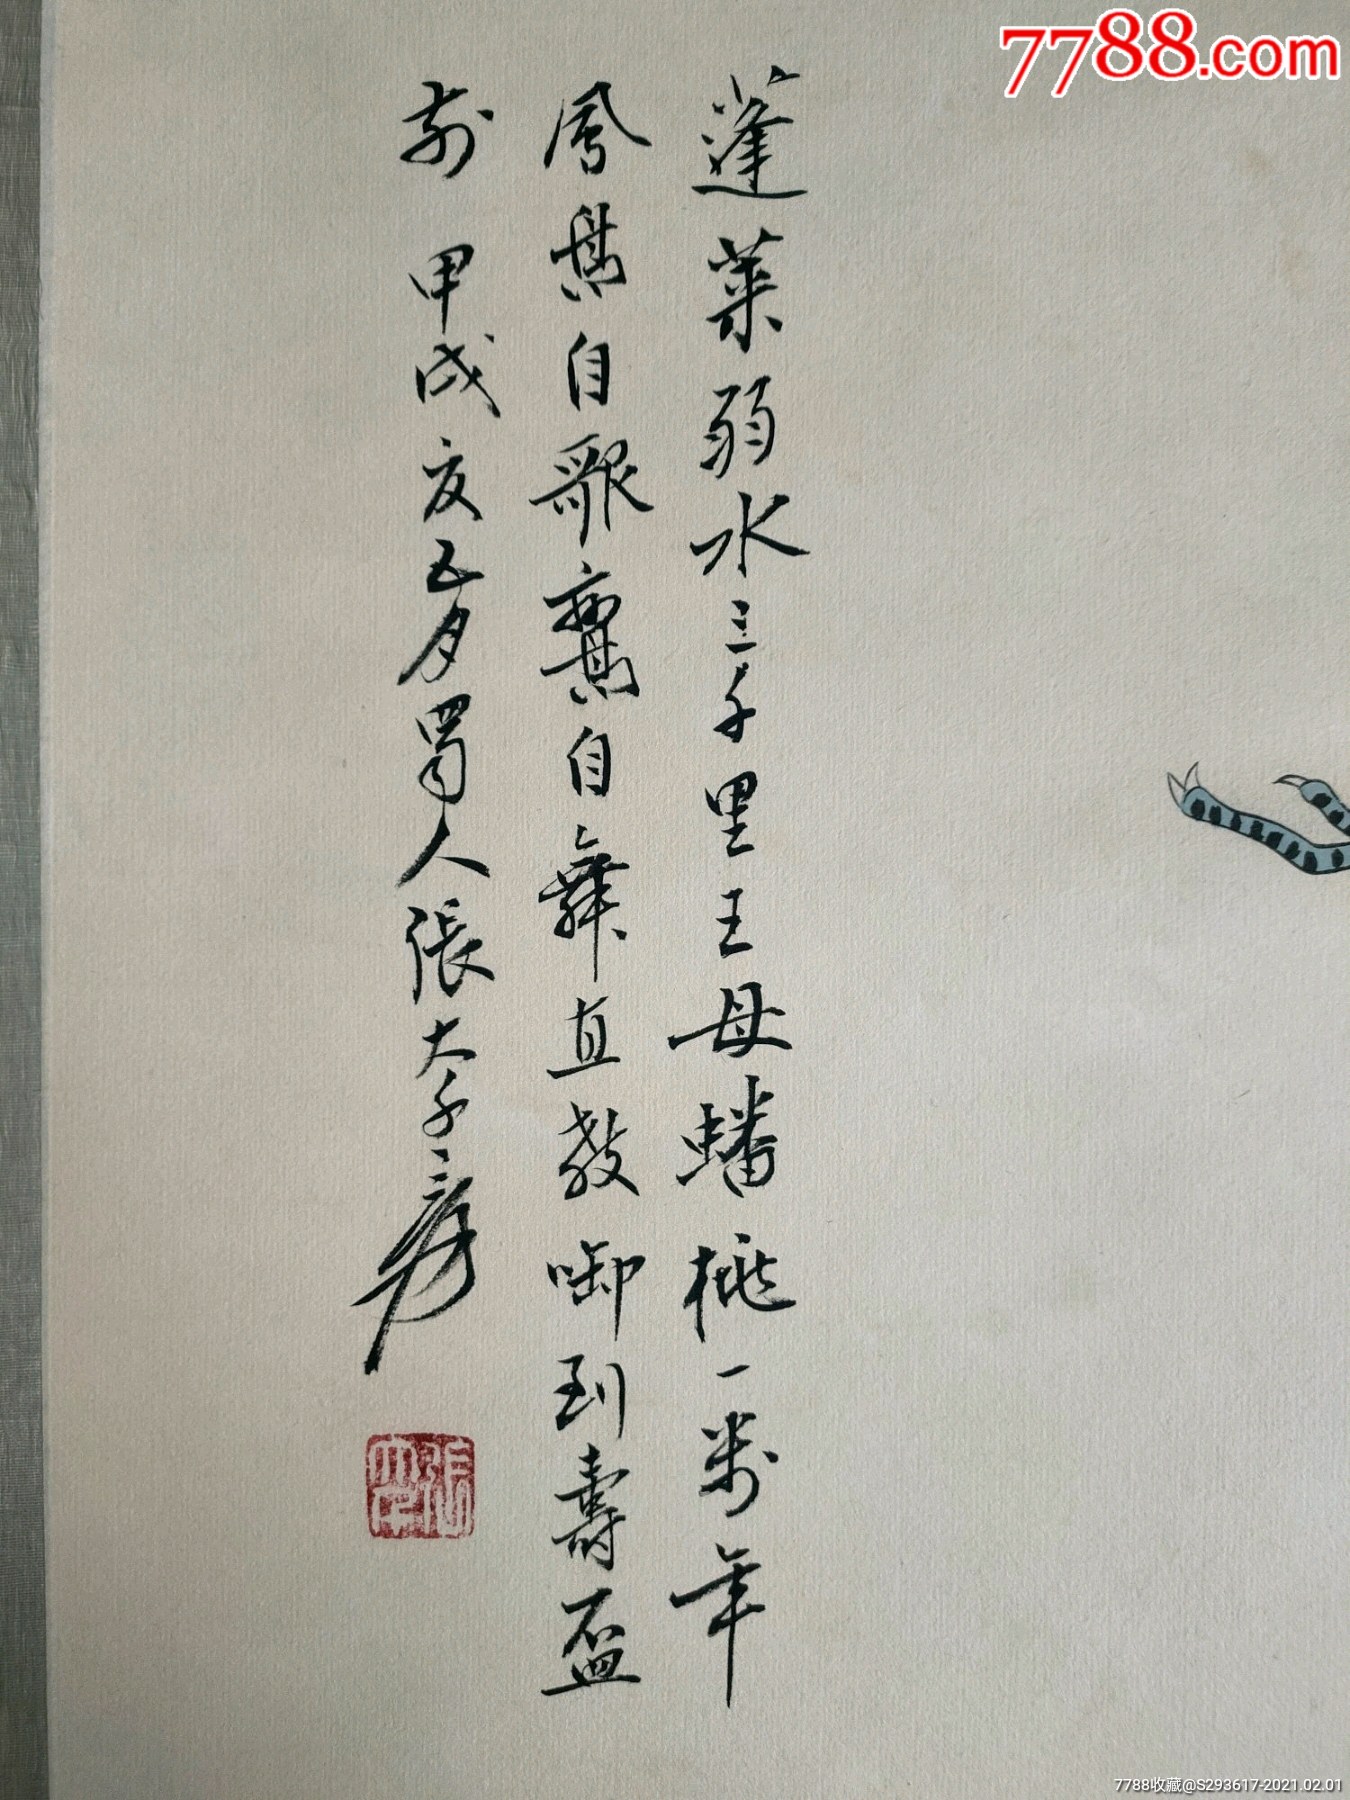 7788.com
蓬萊弱水三千里王母蟠桃一萬年
鳳其自歌鸞其自舞直教啣到壽盃
前 甲戌夏五月蜀人張大千爰
7788收藏@S293617-2021.02.01